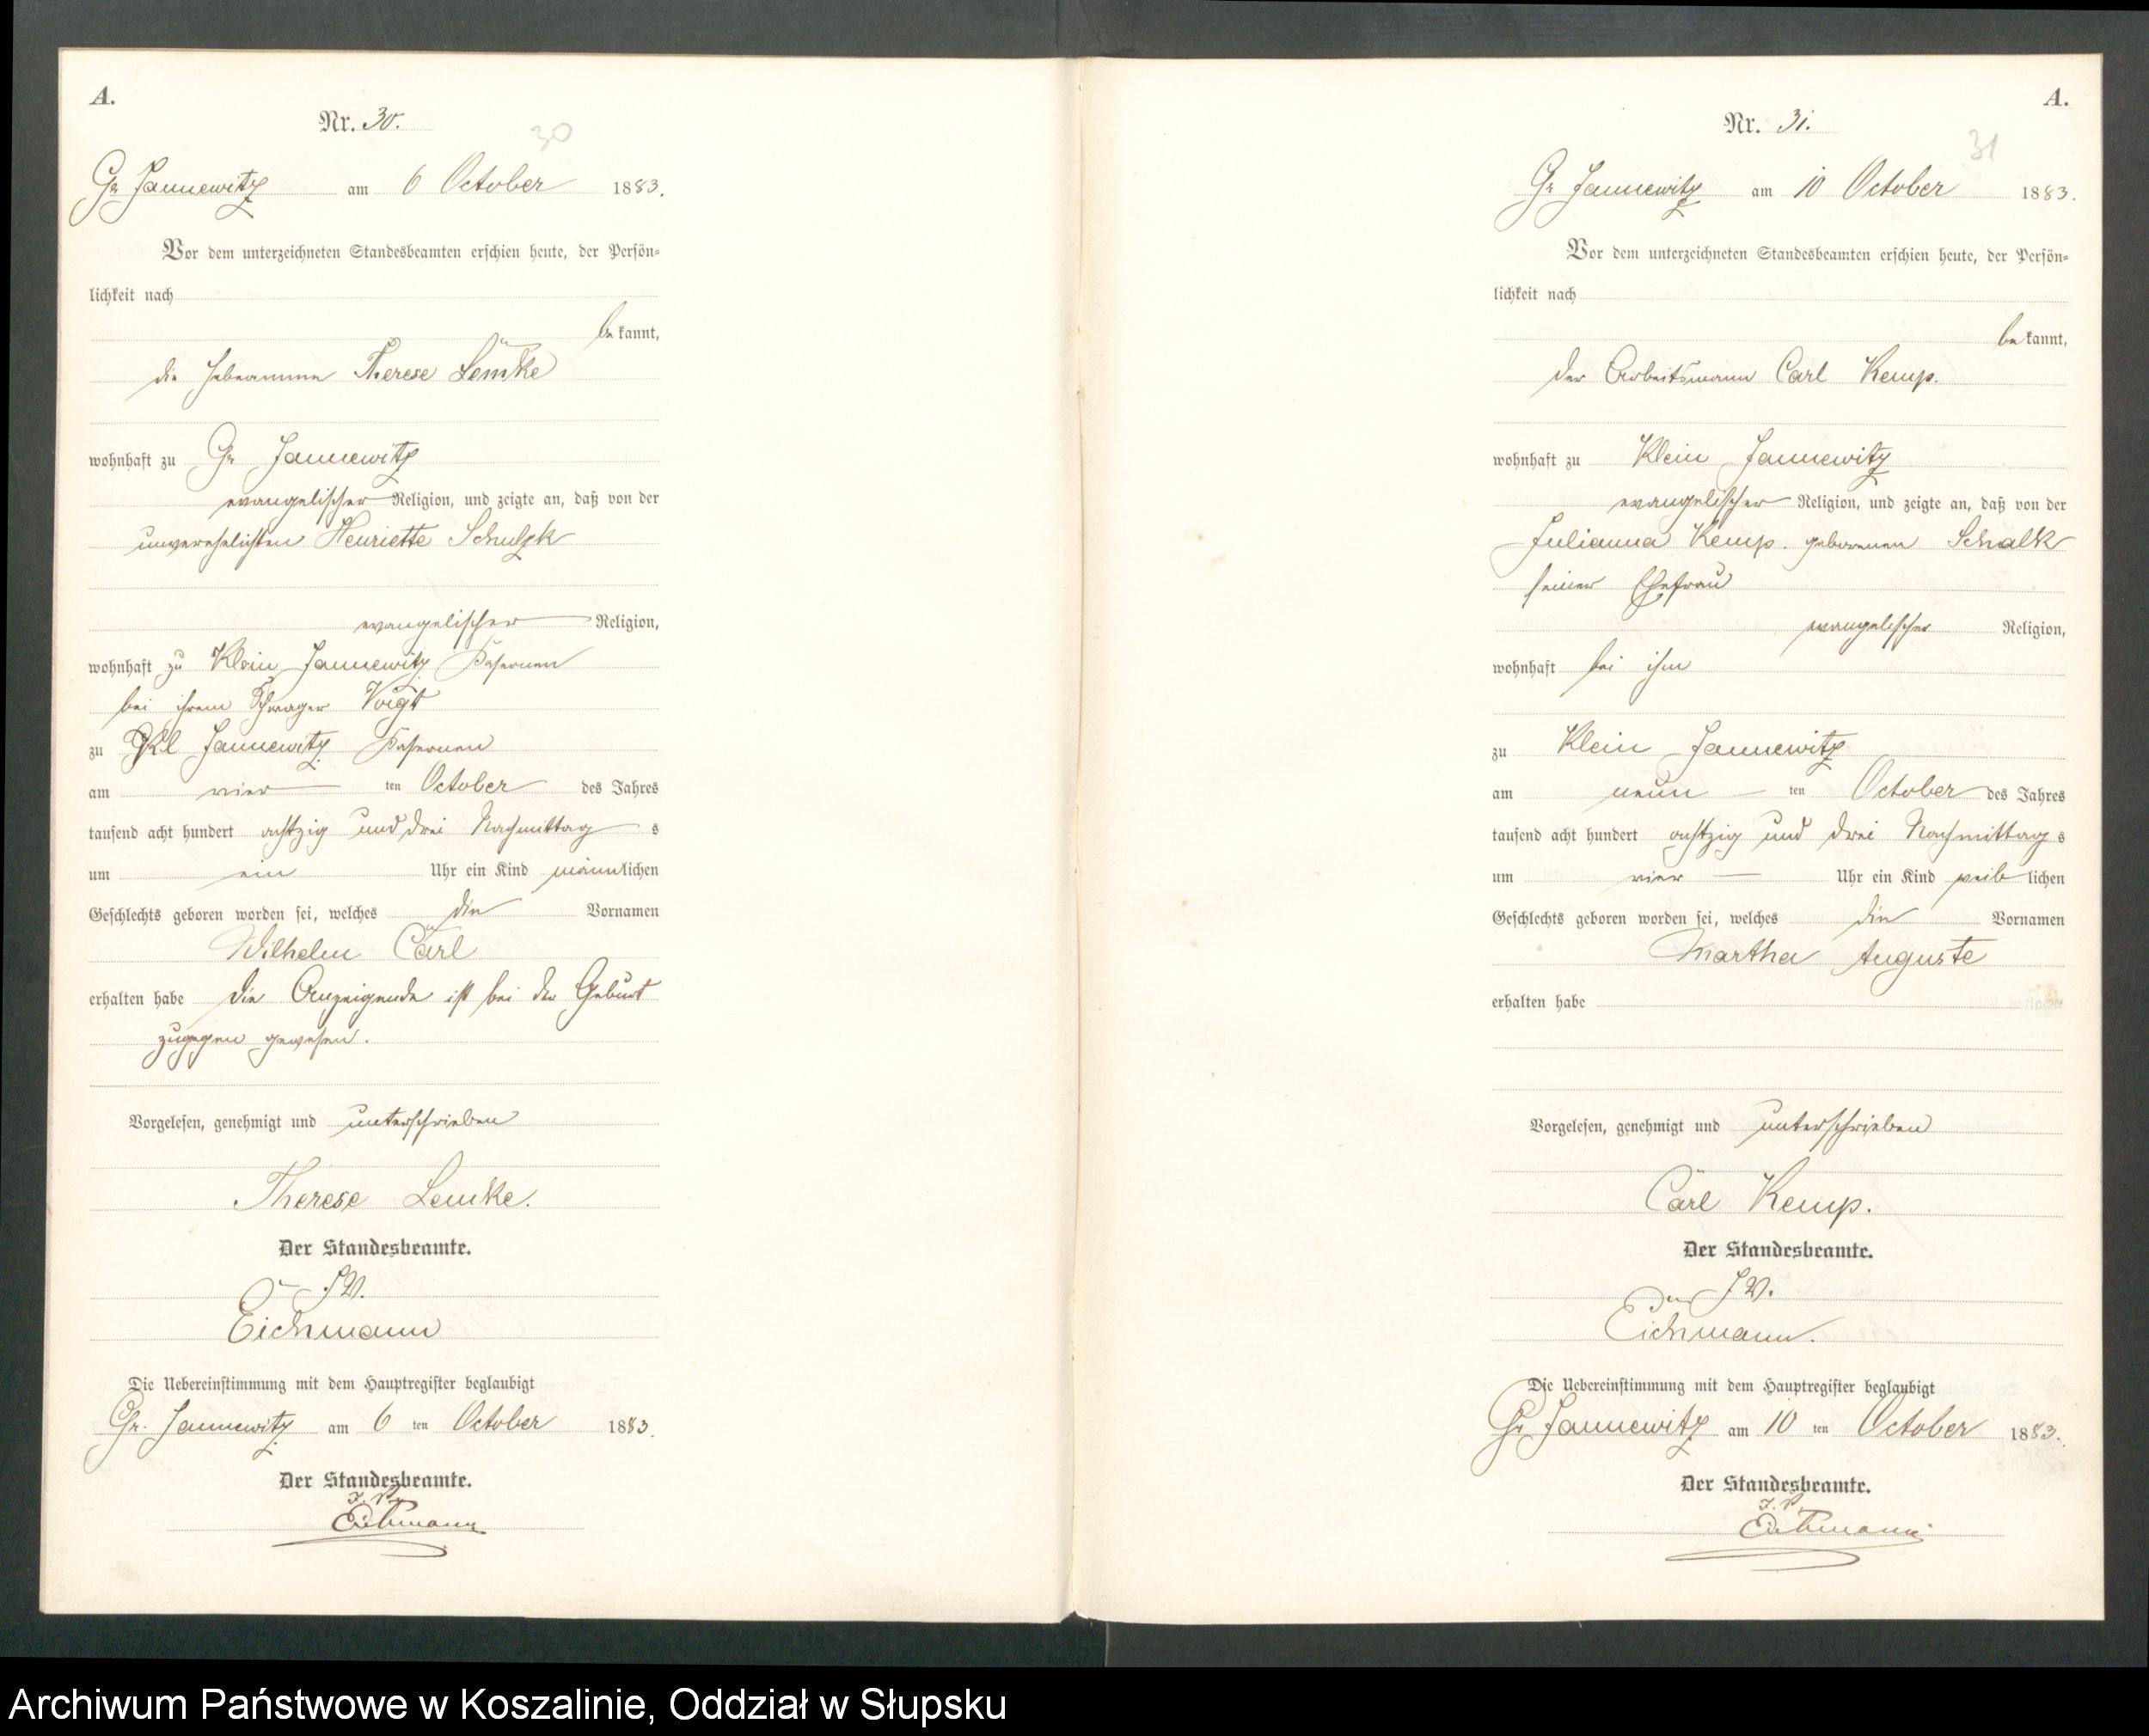 A.
Nr. 30.
30
Gr Jannewitz am 6 October 1883.
Vor dem unterzeichneten Standesbeamten erschien heute, der Persön-
lichkeit nach
bekannt,
die Hebeamme Therese Lemke
wohnhaft zu Gr Jannewitz
evangelischer Religion, und zeigte an, daß von der
unverehelichten Henriette Schulzk
evangelischer Religion,
wohnhaft zu Klein Jannewitz
bei ihrem Schwager Voigt
zu Kl Jannewitz
am vier ten October des Jahres
tausend acht hundert achtzig und drei Nachmittag s
um ein Uhr ein Kind männlichen
Geschlechts geboren worden sei, welches die Vornamen
Wilhelm Carl
erhalten habe die Anzeigende ist bei der Geburt
zugegen gewesen.
Vorgelesen, genehmigt und unterschrieben
Therese Lemke.
Der Standesbeamte.
J V.
Eichmann
Die Uebereinstimmung mit dem Hauptregister beglaubigt
Gr. Jannewitz am 6 ten October 1883.
Der Standesbeamte.
J. V.
Eichmann
A.
Nr. 31.
31
Gr Jannewitz am 10 October 1883.
Vor dem unterzeichneten Standesbeamten erschien heute, der Persön-
lichkeit nach
bekannt,
der Arbeitsmann Carl Kemp.
wohnhaft zu Klein Jannewitz
evangelischer Religion, und zeigte an, daß von der
Julianna Kemp. geborenen Schalk
seiner Ehefrau
evangelischer Religion,
wohnhaft bei ihm
zu Klein Jannewitz
am neun ten October des Jahres
tausend acht hundert achtzig und drei Nachmittag s
um vier Uhr ein Kind weiblichen
Geschlechts geboren worden sei, welches die Vornamen
Martha Auguste
erhalten habe
Vorgelesen, genehmigt und unterschrieben
Carl Kemp.
Der Standesbeamte.
J V.
Eichmann.
Die Uebereinstimmung mit dem Hauptregister beglaubigt
Gr Jannewitz am 10 ten October 1883.
Der Standesbeamte.
J. V.
Eichmann
Archiwum Państwowe w Koszalinie, Oddział w Słupsku